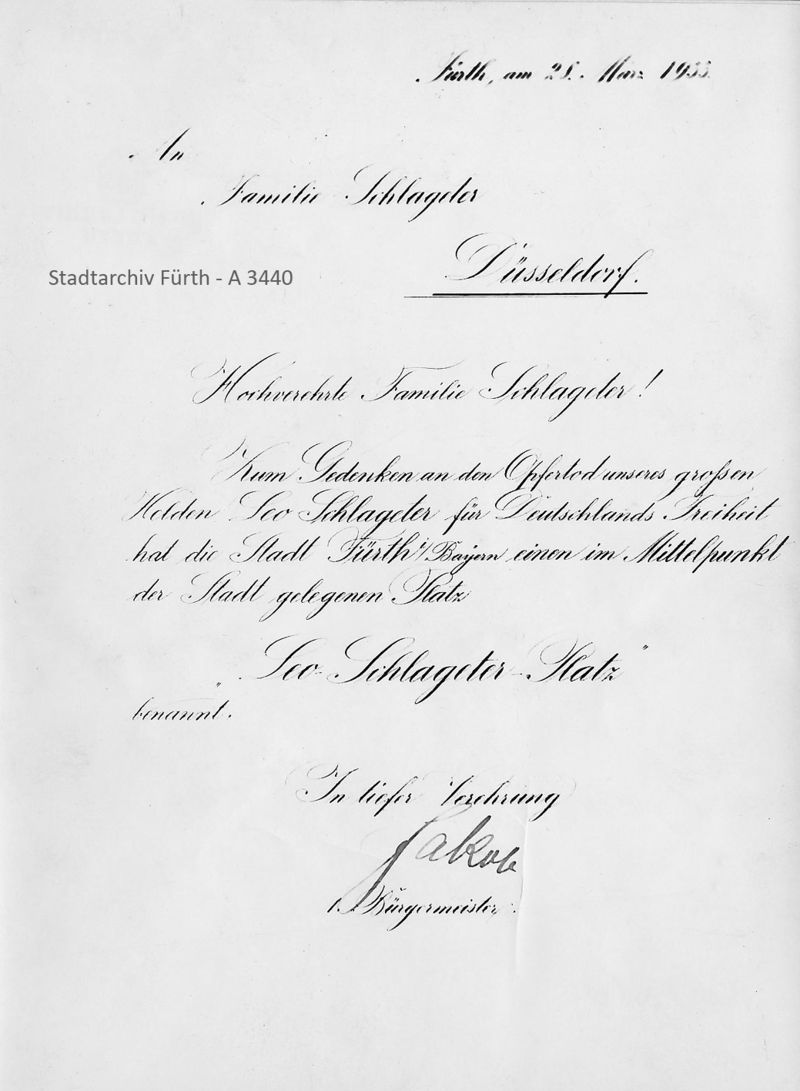 Fürth, am 28. März 1933.
An
Familie Schlageter
Düsseldorf.
Stadtarchiv Fürth - A 3440
Hochverehrte Familie Schlageter!
Zum Gedenken an den Opfertod unseres großen
Helden Leo Schlageter für Deutschlands Freiheit
hat die Stadt Fürth i/Bayern einen im Mittelpunkt
der Stadt gelegenen Platz
„Leo-Schlageter-Platz"
benannt.
In tiefer Verehrung
Jakob
1. Bürgermeister.